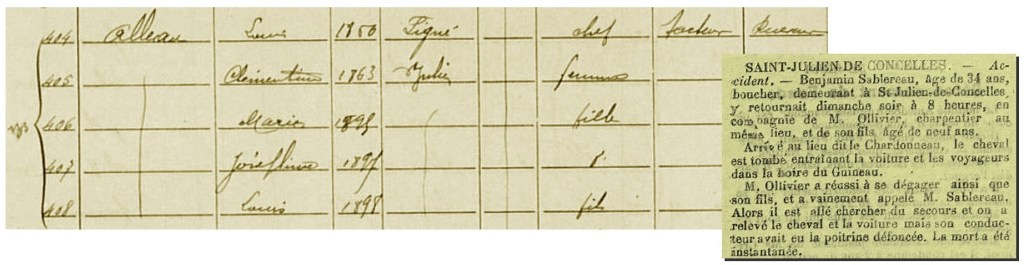 404 Alleau Louis 1860 Ligné chef facteur
405 Clémentine 1863 St Julien femme
406 Marie 1895 fille
407 Joséphine 1897
408 Louis 1898 fils
SAINT-JULIEN DE CONCELLES. — Ac-
cident. — Benjamin Sablereau, âge de 34 ans,
boucher, demeurant à St Julien-de-Concelles
y retournait dimanche soir à 8 heures, en
compagnie de M. Ollivier, charpentier au
même lieu, et de son fils, âgé de neuf ans.
Arrivé au lieu dit le Chardonneau, le cheval
est tombé entraînant la voiture et les voyageurs
dans la boire du Guineau.
M. Ollivier a réussi à se dégager ainsi que
son fils, et a vainement appelé M. Sablereau.
Alors il est allé chercher du secours et on a
relevé le cheval et la voiture mais son conduc-
teur avait eu la poitrine défoncée. La mort a été
instantanée.